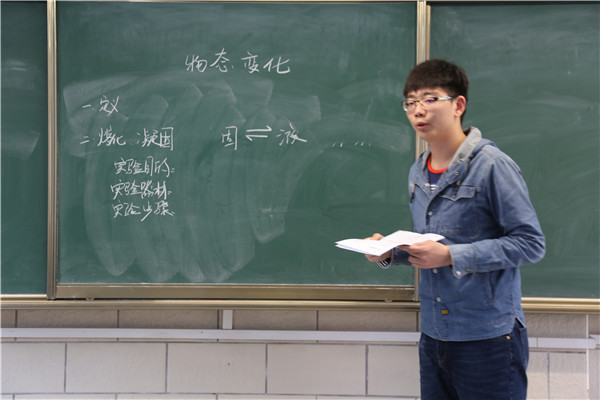 物态变化
一.定义
二.熔化 凝固 固⇌液 ....
实验目的:
实验器材:
实验步骤: